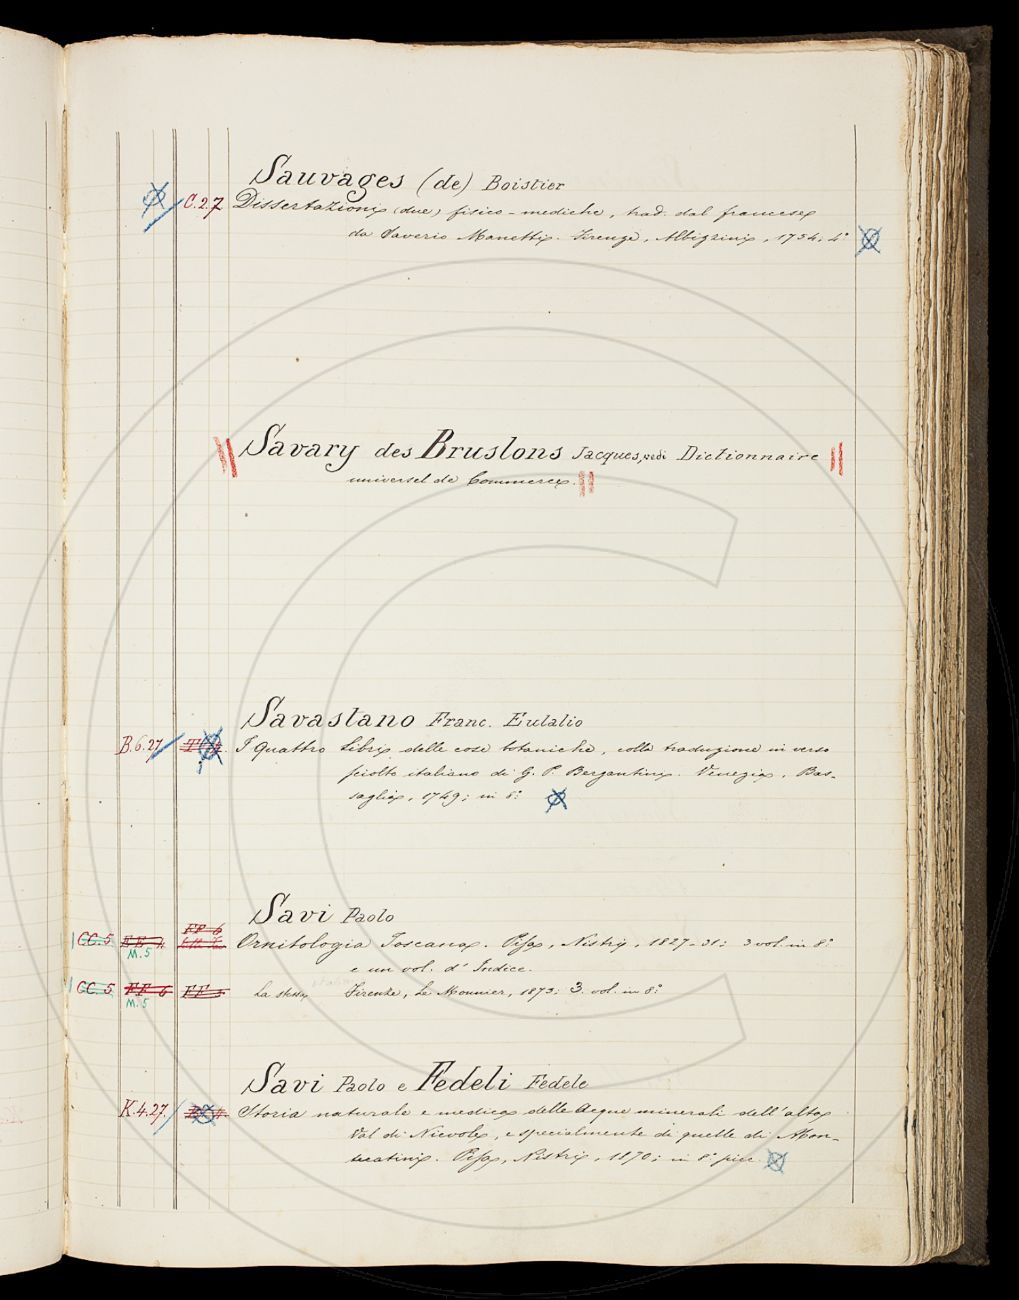 Sauvages (de) Boissier
C.2.7 Dissertazioni (due) fisico-mediche, trad. dal francese
da Saverio Manetti. Firenze, Albizzini, 1754; 4°
Savary des Bruslons Jacques, vedi Dictionnaire
universel de Commerce.
Savastano Franc. Eulalio
B.6.27 I quattro libri delle cose botaniche, colla traduzione in verso
sciolto italiano di G. P. Bergantini. Venezia, Bas-
saglia, 1749; in 8°
Savi Paolo
FF 6
CC.5 EE 7. Ornitologia Toscana. Pisa, Nistri, 1827-31; 3 vol. in 8°
M.5 e un vol. d'Indice.
CC.5 FF 6 FF 5 La stessa Firenze, Le Monnier, 1873; 3. vol. in 8°
M.5
Savi Paolo e Fedeli Fedele
K.4.27. Storia naturale e medica delle Acque minerali dell'alta
Val di Nievole, e specialmente di quelle di Mon-
tecatini. Pisa, Nistri, 1870; in 8° picc.